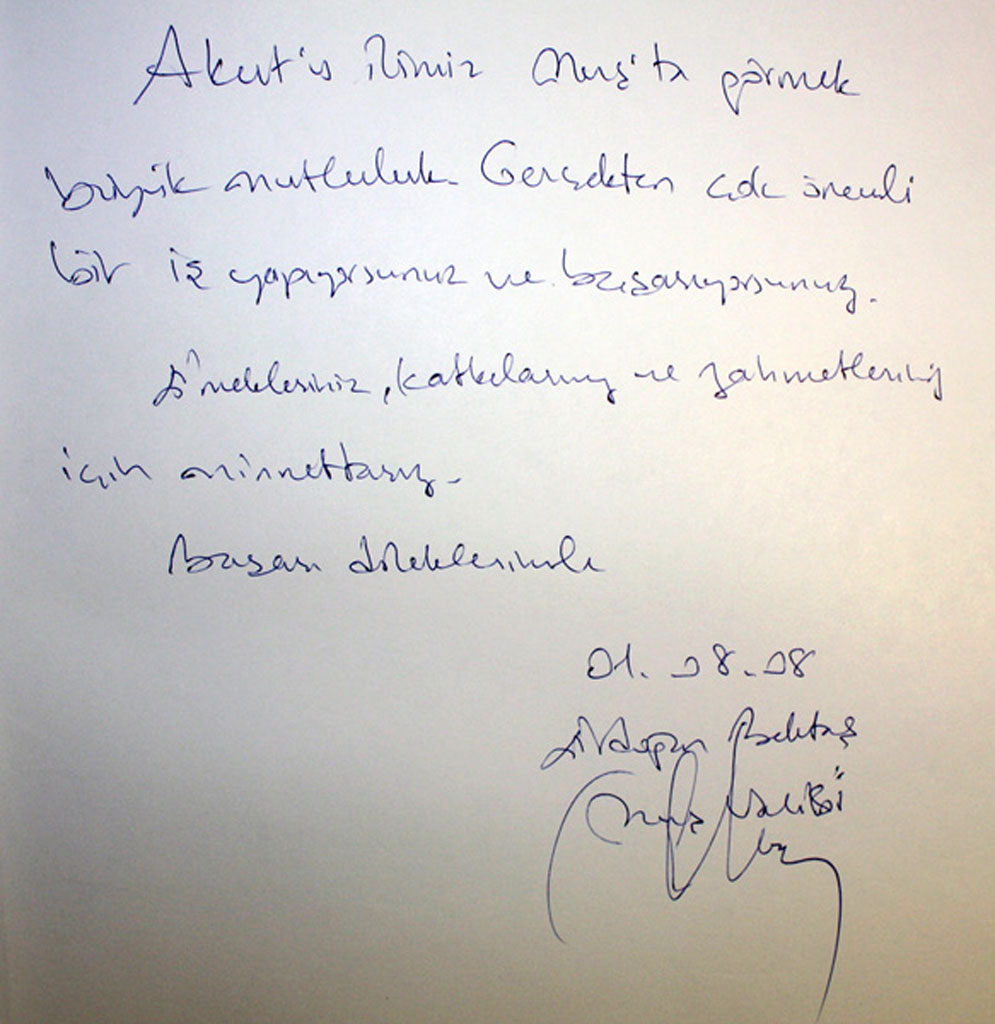 Akut'u ilimiz Muş'ta görmek
büyük mutluluk. Gerçekten çok önemli
bir iş yapıyorsunuz ve başarıyorsunuz.
emekleriniz, katkılarınız ve zahmetleriniz
için minnettarız.
Başarı dileklerimle
01.08.08
Erdoğan Bektaş
Muş Valisi